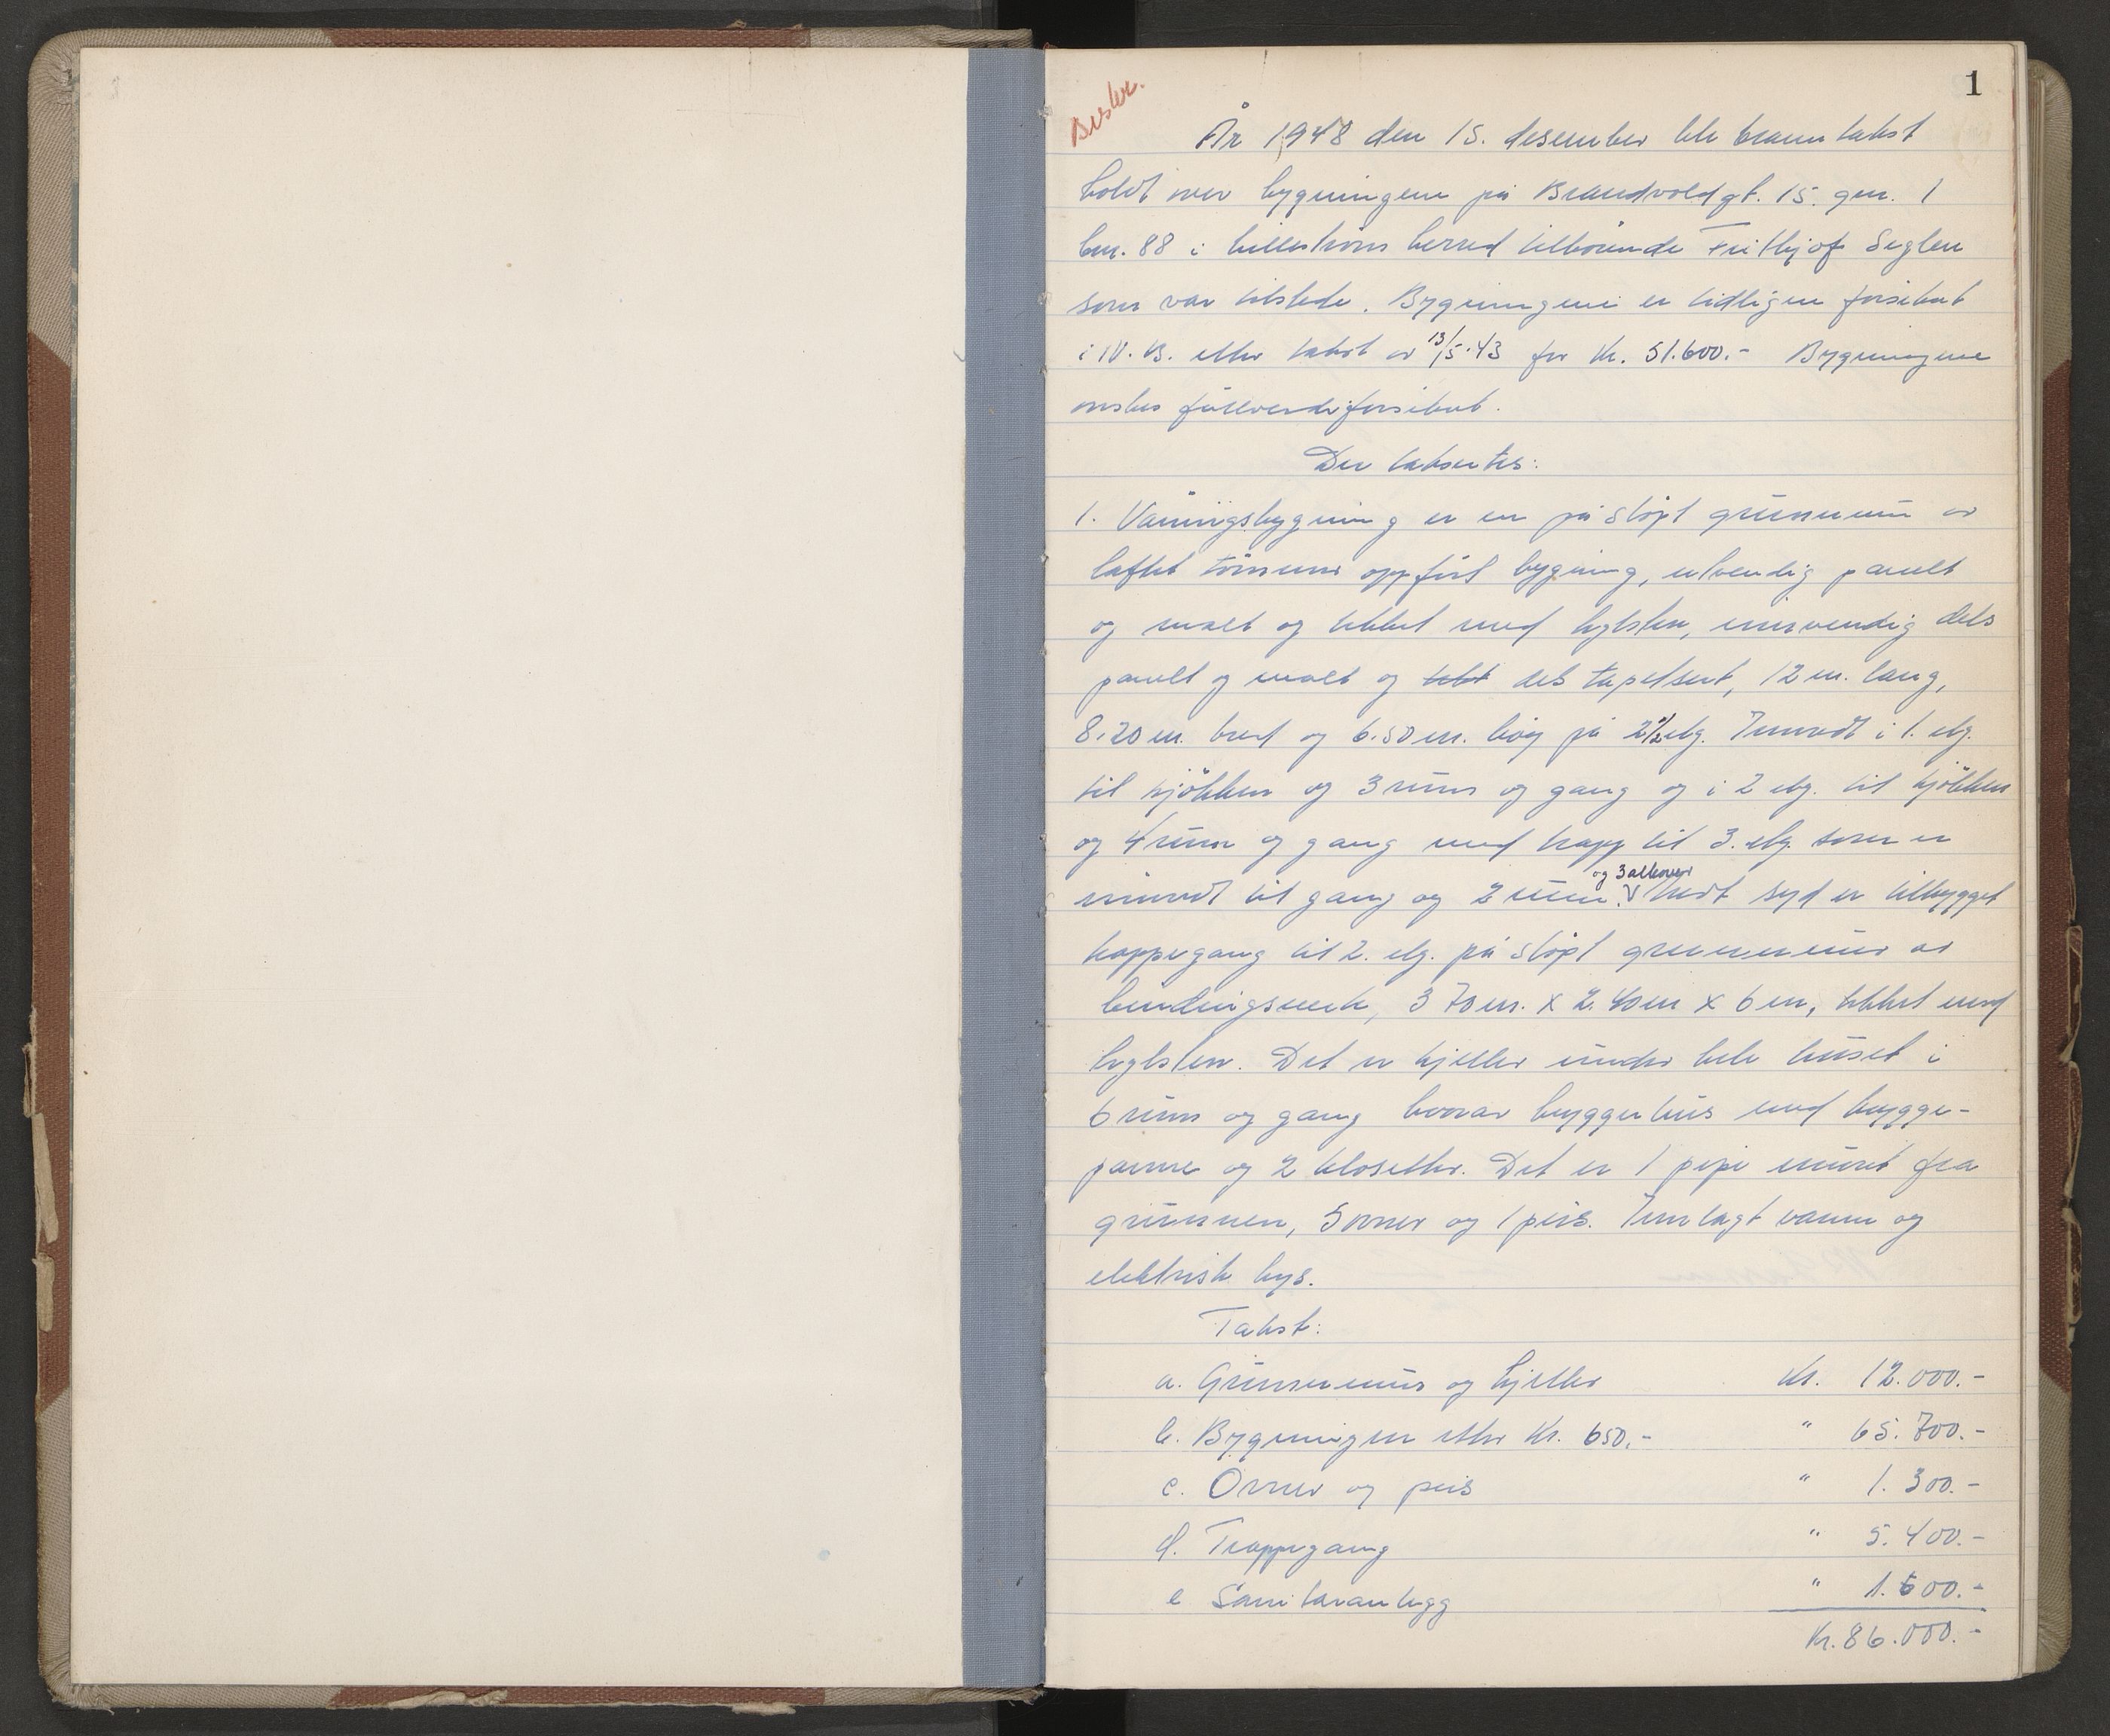 1
Beskr.
År 1948 den 15. desember ble branntakst
holdt over bygningene på Brandvoldgt. 15. gnr. 1
bnr. 88 i Lillestrøm herred tilhørende Frithjof Seglen
som var tilstede. Bygningene er tidligere forsikret
i N.B. etter takst av 13/5.43 for Kr. 51.600.- Bygningene
ønskes fullverdiforsikret.
Der taksertes:
1. Våningsbygning er en på støpt grunnmur av
laftet tømmer oppført bygning, utvendig panelt
og malt og tekket med teglsten, innvendig dels
panelt og malt og dels tapetsert, 12 m. lang,
8.20 m. bred og 6.50 m. høy på 2 1/2 etg. Innredt i 1. etg.
til kjøkken og 3 rum og gang og i 2 etg. til kjøkken
og 4 rum og gang med trapp til 3. etg. som er
innredt til gang og 2 rum og 3 alkover. Mot syd er tilbygget
trappegang til 2. etg. på støpt grunnmur av
bindingsverk, 3.70 m. x 2.40 m x 6 m, tekket med
teglsten. Det er kjeller under hele huset i
6 rum og gang hvorav bryggerhus med brygge-
panne og 2 klosetter. Det er 1 pipe muret fra
grunnen, 5 ovner og 1 peis. Innlagt vann og
elektrisk lys.
Takst:
a. Grunnmur og kjeller Kr. 12.000.-
b. Bygningen etter Kr. 650.- " 65.700.-
c. Ovner og peis " 1.300.-
d. Trappegang " 5.400.-
e Sanitæranlegg " 1.600.-
Kr. 86.000.-